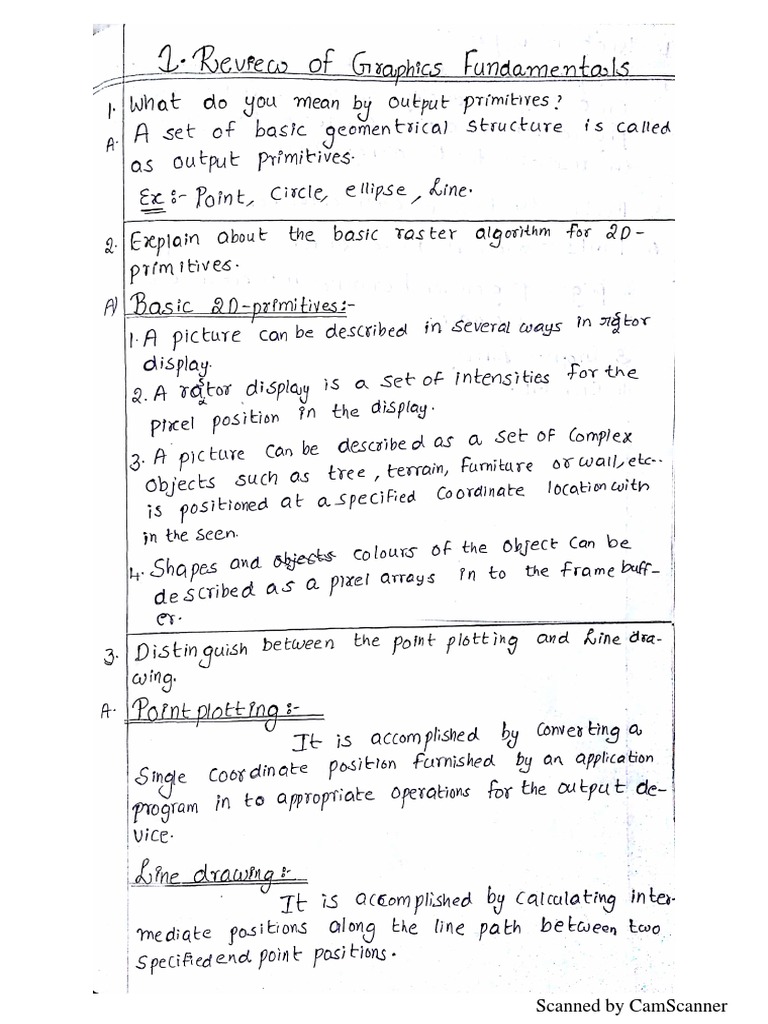 1. Review of Graphics Fundamentals
1. What do you mean by output primitives?
A. A set of basic geomentrical structure is called
as output primitives.
Ex :- Point, Circle, ellipse, Line.
2. Explain about the basic raster algorithm for 2D-
primitives.
A) Basic 2D-primitives:-
1. A picture can be described in several ways in
display.
2. A display is a set of intensities for the
pixel position in the display.
3. A picture can be described as a set of complex
objects such as tree, terrain, furniture or wall, etc..
is positioned at a specified coordinate location with
in the seen.
4. Shapes and objects colours of the object can be
described as a pixel arrays in to the frame buff-
er.
3. Distinguish between the point plotting and Line dra-
wing.
A. Point plotting:-
It is accomplished by converting a
Single coordinate position furnished by an application
program in to appropriate operations for the output de-
vice.
Line drawing:-
It is accomplished by calculating inter-
mediate positions along the line path between two
specified end point positions.
Scanned by CamScanner